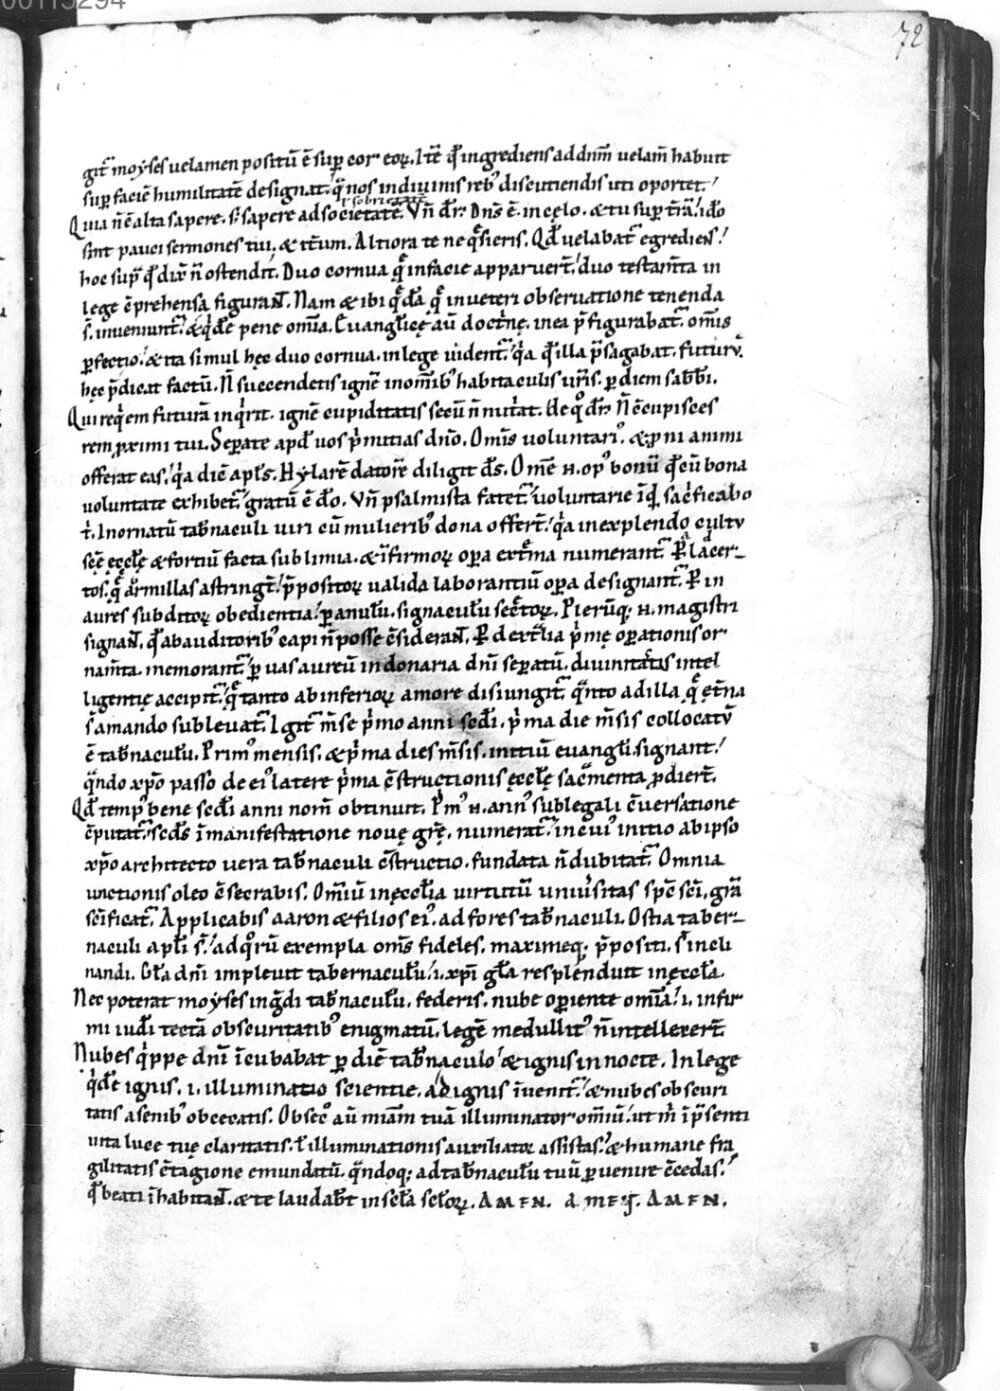 00115294
72
git̄ moyses uelamen positū ē sup̱ cor eoꝝ. Itē qđ ingrediens ad dnm̄ uelam̄ habuit
sup̱ faciē humilitatē designat. q̄ nos in diuinis reb᾽ discutiendis uti oportet.
ł sobrietatē
Quia n̄ ē alta sapere. s; sapere ad societatē. Vn̄ dr̄. Dn̄s ē in cęlo. & tu sup̱ trā. ido
sint pauci sermones tui. & itr̄um. Altiora te ne q̄sieris. Qđ uelabat̄ egrediens.
hoc sup̱ qđ dix̄ n̄ ostendit. Duo cornua q̄ in facie apparuer̄t. duo testam̄ta in
lege c̄prehensa figurant. Nam & ibi q̄dā q̄ in ueteri obseruatione tenenda
s̄. inueniunt̄. & q̇dē pene om̄ia. Euanglicę aū doctrinę. in ea p̄figurabat̄. om̄is
ꝑfectio. & ita simul hęc duo cornua. in lege uident̄. q̇a qđ illa p̄sagabat. futurū.
hęc p̄dicat factū. N̄ succendetis ignē in om̄ib᾽ habitaculis ur̄is. ꝑ diem sabb̄i.
Qui req̇em futurā inq̇rit. ignē cupiditatis secū n̄ nut̄at. De q᾽ dr̄. N̄ c̄cupisces
rem ꝓximi tui. Sep̱arate apđ uos p̄mitias dn̄o. Om̄is uoluntari᾽. & ꝓni animi
offerat eas. q̇a dic̄ apłs. Hylarē datorē diligit d̄s. Om̄e n. op᾽ bonū qđ cū bona
uoluntate exhibet̄. gratū ē dō. Vn̄ psalmista fatet̄. uoluntarie īq̇d sac̄ficabo
t̄. In ornatū tab̄naculi uiri cū mulierib᾽ dona offer̄t. q̇a in explendo cultu
scę ęcclę & fortiū facta sublimia. & īfirmoꝝ op̱a extrēma numerant̄. ꝑ lacer-
tos. q̄ armillas astrinḡt. p̄positoꝝ ualida laborantiū op̱a designant̄. ꝑ in
aures subditoꝝ obedientia. ꝑ anulū. signaculū secr̄toꝝ. Pierūq; n. magistri
signant. qđ ab auditorib᾽ capi n̄ posse c̄siderant. ꝑ dextr̄alia p̄mę op̱ationis or
nam̄ta. memorant̄. ꝑ uas aureū in donaria dn̄i sep̱atū. diuinitatis intel
ligentię accipit̄. q̄ tanto ab inferioꝝ amore disiungit̄. q̄nto ad illa q̄ et̄na
s̄ amando subleuat̄. Igit̄ m̄se p̄mo anni sedi. p̄ma die m̄sis collocatū
ē tab̄naculū. Prim᾽ mensis. & p̄ma dies m̄sis. initiū euangłi signant.
q̄ndo xp̄o passo de ei᾽ latere p̄ma c̄structionis ęcclę sac̄menta ꝓdier̄t.
Qđ temp᾽ bene secđi anni nom̄ obtinuit. Pm᾽ n. ann᾽ sub legali c̄uersatione
c̄putat̄. secđs ī manifestatione nouę grę. numerat̄. in cui᾽ initio ab ipso
xp̄o architecto uera tab̄naculi c̄structio. fundata n̄ dubitat̄. Omnia
unctionis oleo c̄secrabis. Om̄iū in ęcclia uirtutū uniuersitas spc̄ scī. grā
scīficat̄. Applicabis aaron & filios ei᾽. ad fores tab̄naculi. Ostia taber-
naculi apłi s̄. ad quorū exempla om̄s fideles. maximeq; p̄positi. s̄ incli
nandi. Gła dn̄i impleuit tabernaculū. i. xpī gła resplenduit in ęccła.
Nec poterat moyses ingrdi tab̄naculū. federis. nube op̱iente om̄ia. i. infir
mi iudi tecta obscuritatib᾽ enigmatū. legē medullit᾽ n̄ intellexer̄t.
Nubes q̇ppe dn̄i īcubabat ꝑ diē tab̄naculo & ignis in nocte. In lege
q̇dē ignis. i. illuminatio scientie. a dignis īuenit̄. & nubes obscuri
tatis a senib᾽ obcecatis. Obsec᾽ aū miam̄ tuā illuminator om̄iū. ut m̄ ī p̄senti
uita luce tuę claritatis. ł illuminationis auxiliator assistas. & humane fra
gilitatis c̄tagione emundatū. q̄ndoq; ad tab̄naculū tuū ꝑuenire c̄cedas.
qđ beati īhabitant. & te laudabt̄ in scła scłoꝝ. AMEN. AMEN. AMEN.